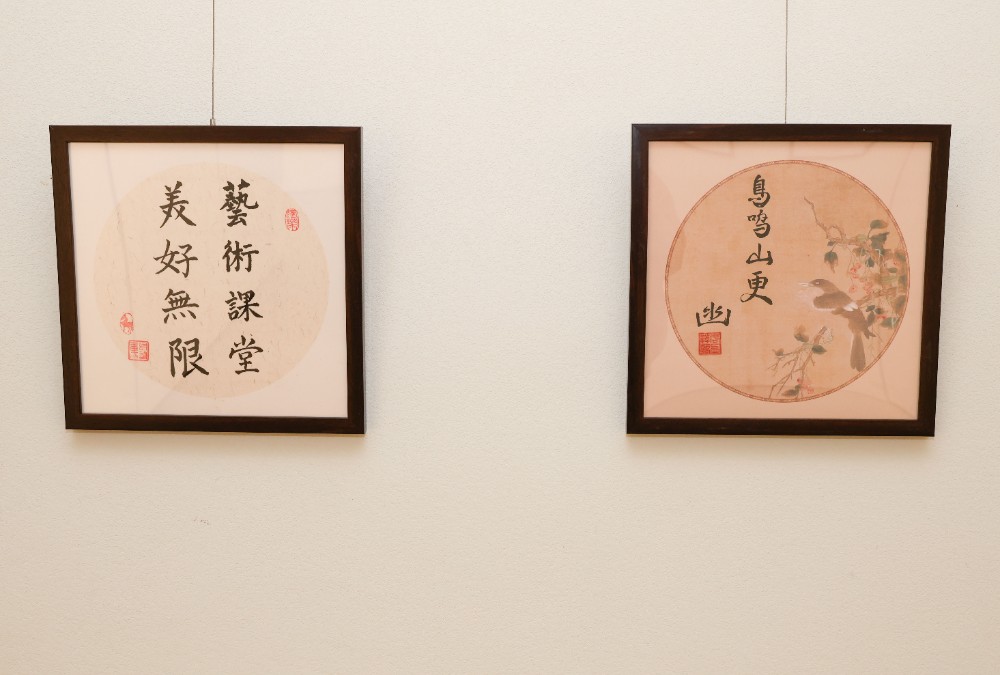 藝術課堂
美好無限
鳥鳴山更
幽